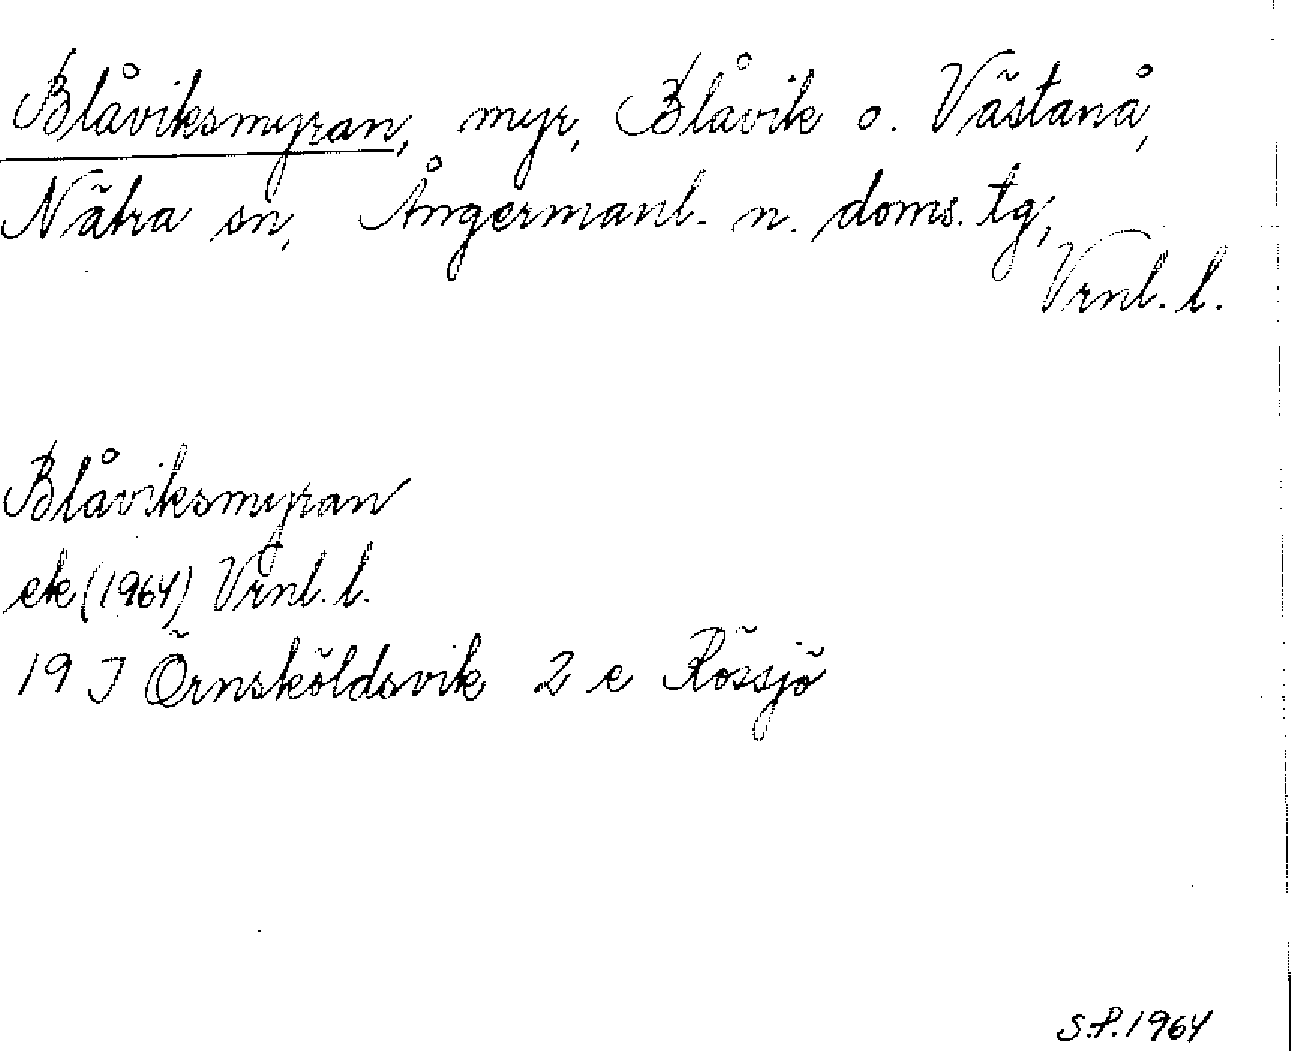 Blåviksmyran, myr, Blåvik o. Västanå,
Nätra sn, Ångermanl. n. doms. tg,
Vrnl. l.
Blåviksmyran
ek (1964) Vrnl. l.
19 J Örnsköldsvik 2 e Rössjö
S.P. 1964